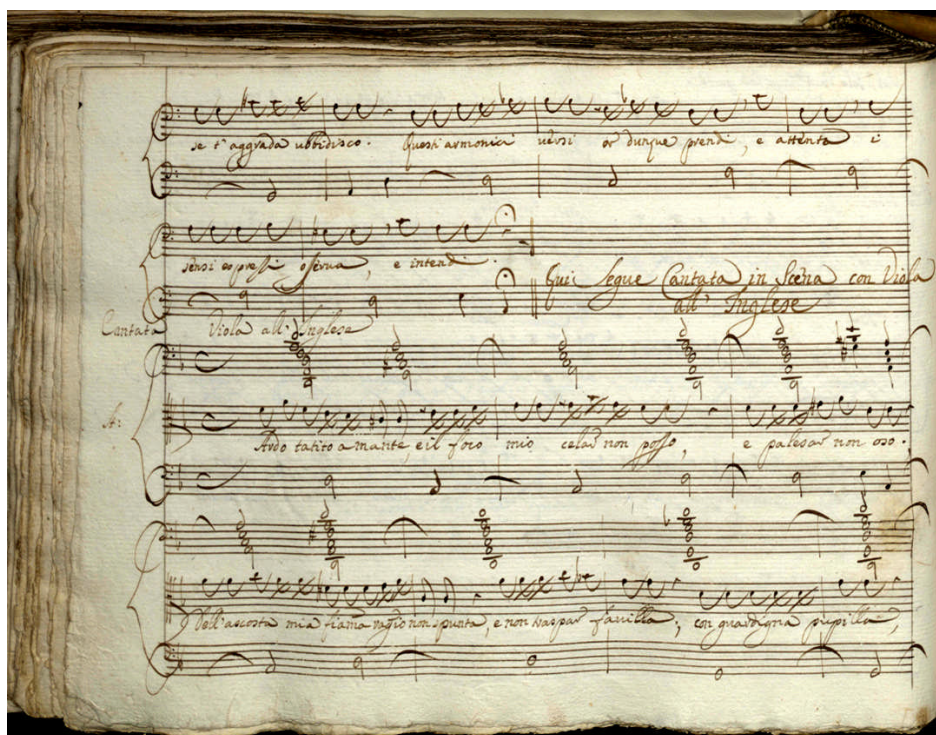 se t'aggrada ubbidisco. Questi armonici versi or dunque prendi, e attenta i
sensi espressi osserva, e intendi.
Qui segue Cantata in Scena con Viola
all'Inglese
Cantata Viola all'Inglese
Ardo tacito amante, e il foco mio celar non posso, e palesar non oso.
Dell'ascosta mia fiama raggio non spunta, e non traspar favilla; con guardigna pupilla,